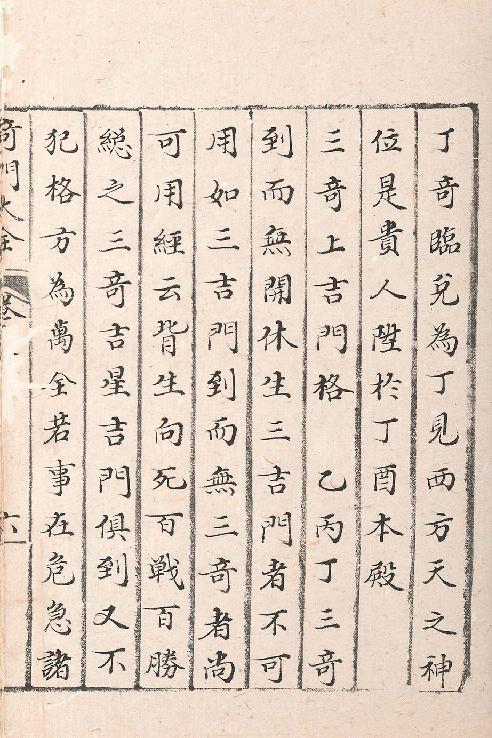 丁奇臨兌為丁見西方天之神
位是貴人陞於丁酉本殿
三奇上吉門格　乙丙丁三奇
到而無開休生三吉門者不可
用如三吉門到而無三奇者尚
可用經云背生向死百戰百勝
緫之三奇吉星吉門俱到又不
犯格方為萬全若事在危急諸
奇門大全　卷　六